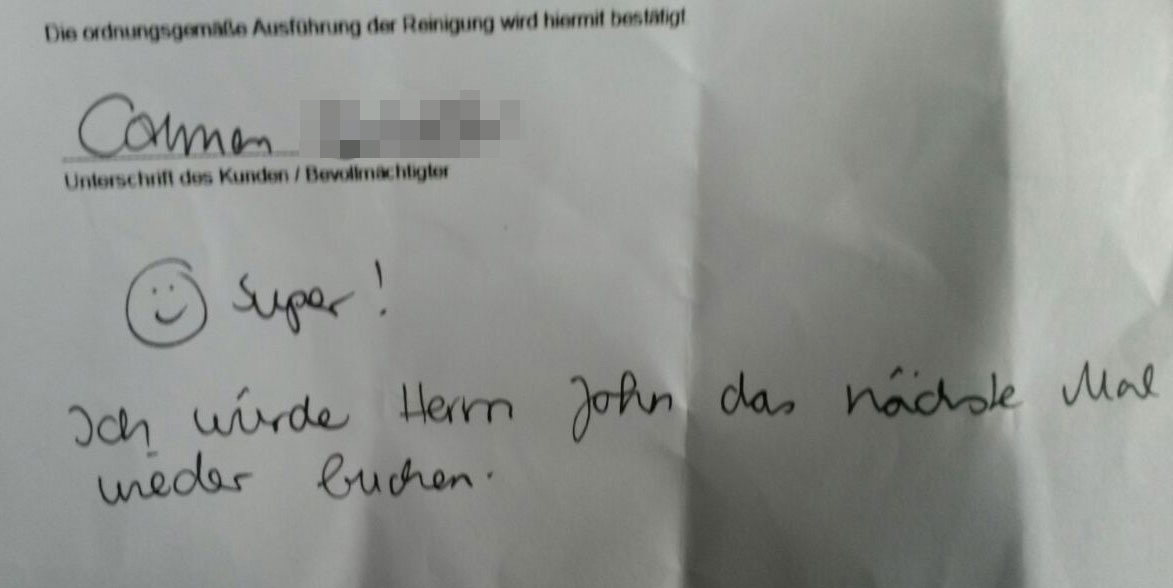 Die ordnungsgemäße Ausführung der Reinigung wird hiermit bestätigt
Carmen
Unterschrift des Kunden / Bevollmächtigter
Super!
Ich würde Herrn John das nächste Mal
wieder buchen.